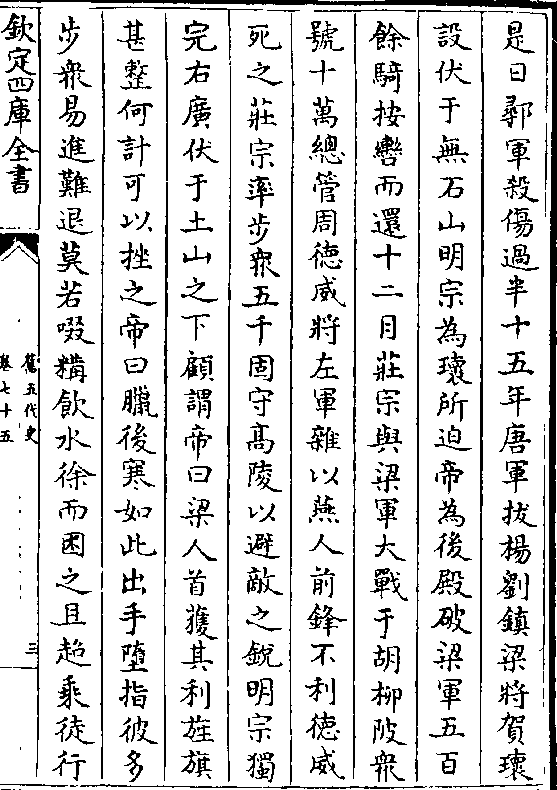 是日鄩軍殺傷過半十五年唐軍拔楊劉鎮梁將賀瓌
設伏于無石山明宗為瓌所迫帝為後殿破梁軍五百
餘騎按轡而還十二月莊宗與梁軍大戰于胡柳陂衆
號十萬總管周德威將左軍雜以燕人前鋒不利德威
死之莊宗率步衆五千固守高陵以避敵之銳明宗獨
完右廣伏于土山之下顧謂帝曰梁人首獲其利旌旗
甚整何計可以挫之帝曰臘後寒如此出手墮指彼多
步衆易進難退莫若啜糒飲水徐而困之且趫乘徒行
欽定四庫全書
舊五代史
卷七十五
三